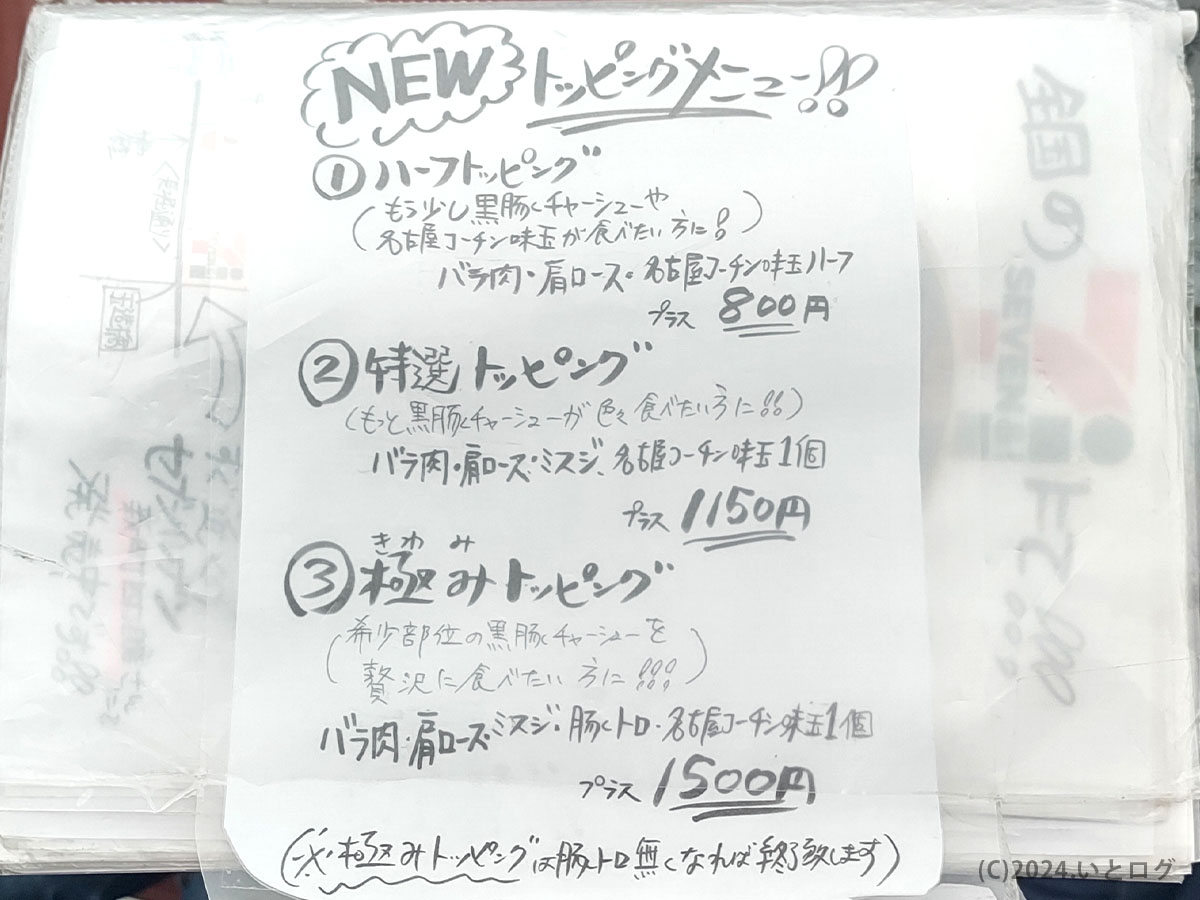 NEW トッピングメニュー!!
① ハーフトッピング
(もう少し黒豚チャーシューや
名古屋コーチン味玉が食べたい方に!!)
バラ肉・肩ロース・名古屋コーチン味玉ハーフ
プラス 800円
② 特選トッピング
(もっと黒豚チャーシューが色々食べたい方に!!)
バラ肉・肩ロース・ミスジ、名古屋コーチン味玉1個
プラス 1150円
きわ み
③ 極みトッピング
(希少部位の黒豚チャーシューを
贅沢に食べたい方に!!!)
バラ肉・肩ロース・ミスジ・豚トロ・名古屋コーチン味玉1個
プラス 1500円
(※極みトッピングは豚トロ無くなれば終了致します)
全国の
SEVEN
(C)2024.いとログ